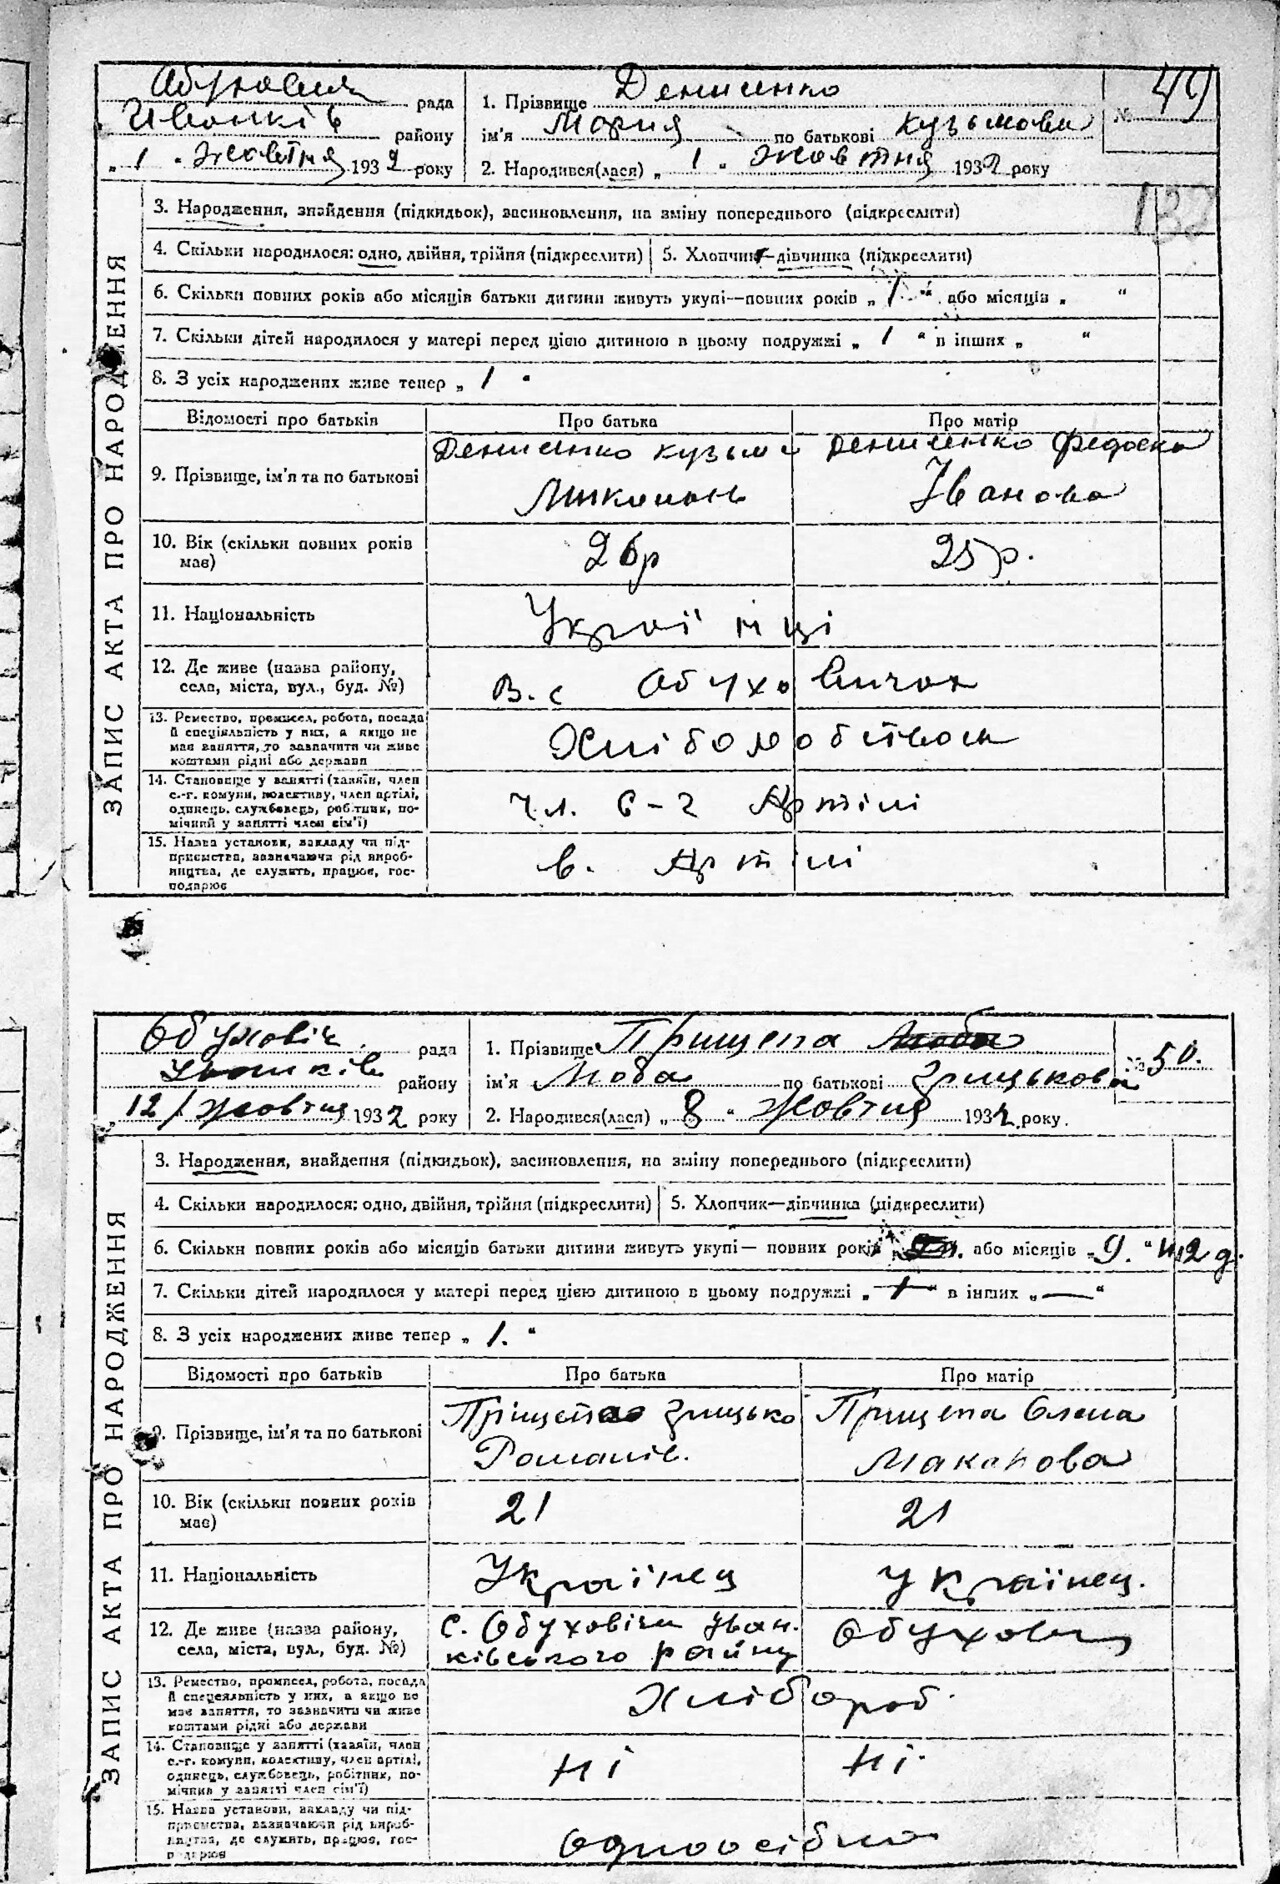 рада
Іванків району
„ 1 " Жовтня 1932 року
1. Прізвище Денисенко
ім'я Мария по батькові Кузьмова
2. Народився(лася) „ 1 " Жовтня 1932 року
№ 49
132
ЗАПИС АКТА ПРО НАРОДЖЕННЯ
3. Народження, знайдення (підкидьок), засиновлення, на зміну попереднього (підкреслити)
4. Скільки народилося: одно, двійня, трійня (підкреслити) 5. Хлопчик—дівчинка (підкреслити)
6. Скільки повних років або місяців батьки дитини живуть укупі—повних років „ 1 " або місяців „ "
7. Скільки дітей народилося у матері перед цією дитиною в цьому подружжі „ 1 " в інших „ "
8. З усіх народжених живе тепер „ 1 "
Відомості про батьків Про батька Про матір
9. Прізвище, ім'я та по батькові Денисенко Кузьма Денисенко Федоска
Іванова
10. Вік (скільки повних років має) 26р 25р.
11. Національність Українці
12. Де живе (назва району, села, міста, вул., буд. №) в. с Обуховичах
13. Ремество, промисел, робота, посада й спеціяльність у них, а якщо не має заняття, то зазначити чи живе коштами рідні або держави
14. Становище у занятті (хазяїн, член с.-г. комуни, колективу, член артілі, одинець, службовець, робітник, помічний у занятті член сім'ї) чл. с-г Артілі
15. Назва установи, закладу чи підприємства, зазначаючи рід виробництва, де служить, працює, господарює в. Артілі
Обуховіч рада
Іванків району
12/ Жовтня 1932 року
1. Прізвище Прищепа
ім'я Люба по батькові Грицькова
2. Народився(лася) „ 8 " Жовтня 1932 року.
№ 50.
ЗАПИС АКТА ПРО НАРОДЖЕННЯ
3. Народження, знайдення (підкидьок), засиновлення, на зміну попереднього (підкреслити)
4. Скільки народилося: одно, двійня, трійня (підкреслити) 5. Хлопчик—дівчинка (підкреслити)
6. Скільки повних років або місяців батьки дитини живуть укупі— повних років або місяців „ 9. " и 12 д.
7. Скільки дітей народилося у матері перед цією дитиною в цьому подружжі „ 1 " в інших „ — "
8. З усіх народжених живе тепер „ 1. "
Відомості про батьків Про батька Про матір
9. Прізвище, ім'я та по батькові Грицько Прищепа Олена
Романів. Макарова
10. Вік (скільки повних років має) 21 21
11. Національність Українец Українец.
12. Де живе (назва району, села, міста, вул., буд. №) с. Обуховічи Іван-
ківського району
13. Ремество, промисел, робота, посада й спеціяльність у них, а якщо не має заняття, то зазначити чи живе коштами рідні або держави Хлібороб.
14. Становище у занятті (хазяїн, член с.-г. комуни, колективу, член артілі, одинець, службовець, робітник, помічник у занятті член сім'ї) ні ні.
15. Назва установи, закладу чи підприємства, зазначаючи рід виробництва, де служить, працює, господарює Одноосібно